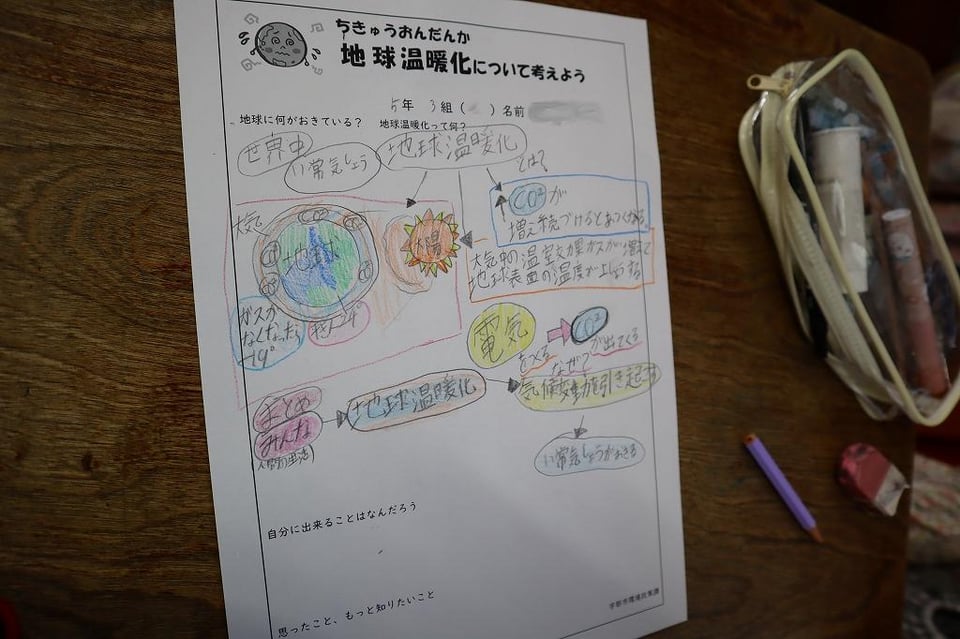 ちきゅうおんだんか
地球温暖化について考えよう
5年 3組( )名前
地球に何がおきている? 地球温暖化って何?
世界中
い常気しょう
地球温暖化
とは?
CO²が
増え続づけるとあつくなる
大気中の温室効果ガスが増えて
地球表面の温度が上しょうする
大気
CO²
地球
太陽
ガスが
なくなったら
-19°
電気
CO²
をつくる
なぜ?
が出てくる
気候変動を引き起こす
まとめ
みんな
人間の生活
地球温暖化
い常気しょうがおきる
自分に出来ることはなんだろう
思ったこと、もっと知りたいこと
宇部市環境政策課